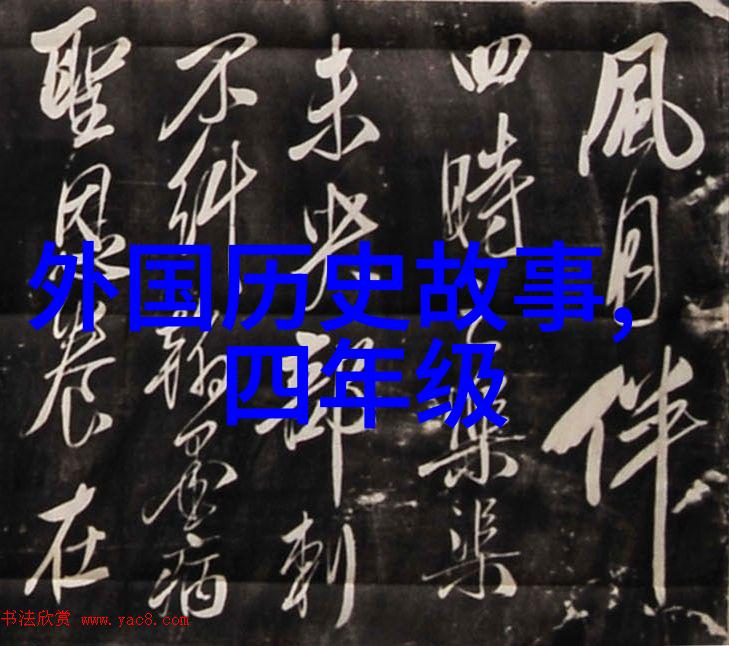 風月伴
四時樂
未央刺
不翰墨病
聖恩在
外国历史故事,
四年级
书法欣赏 www.yac8.com